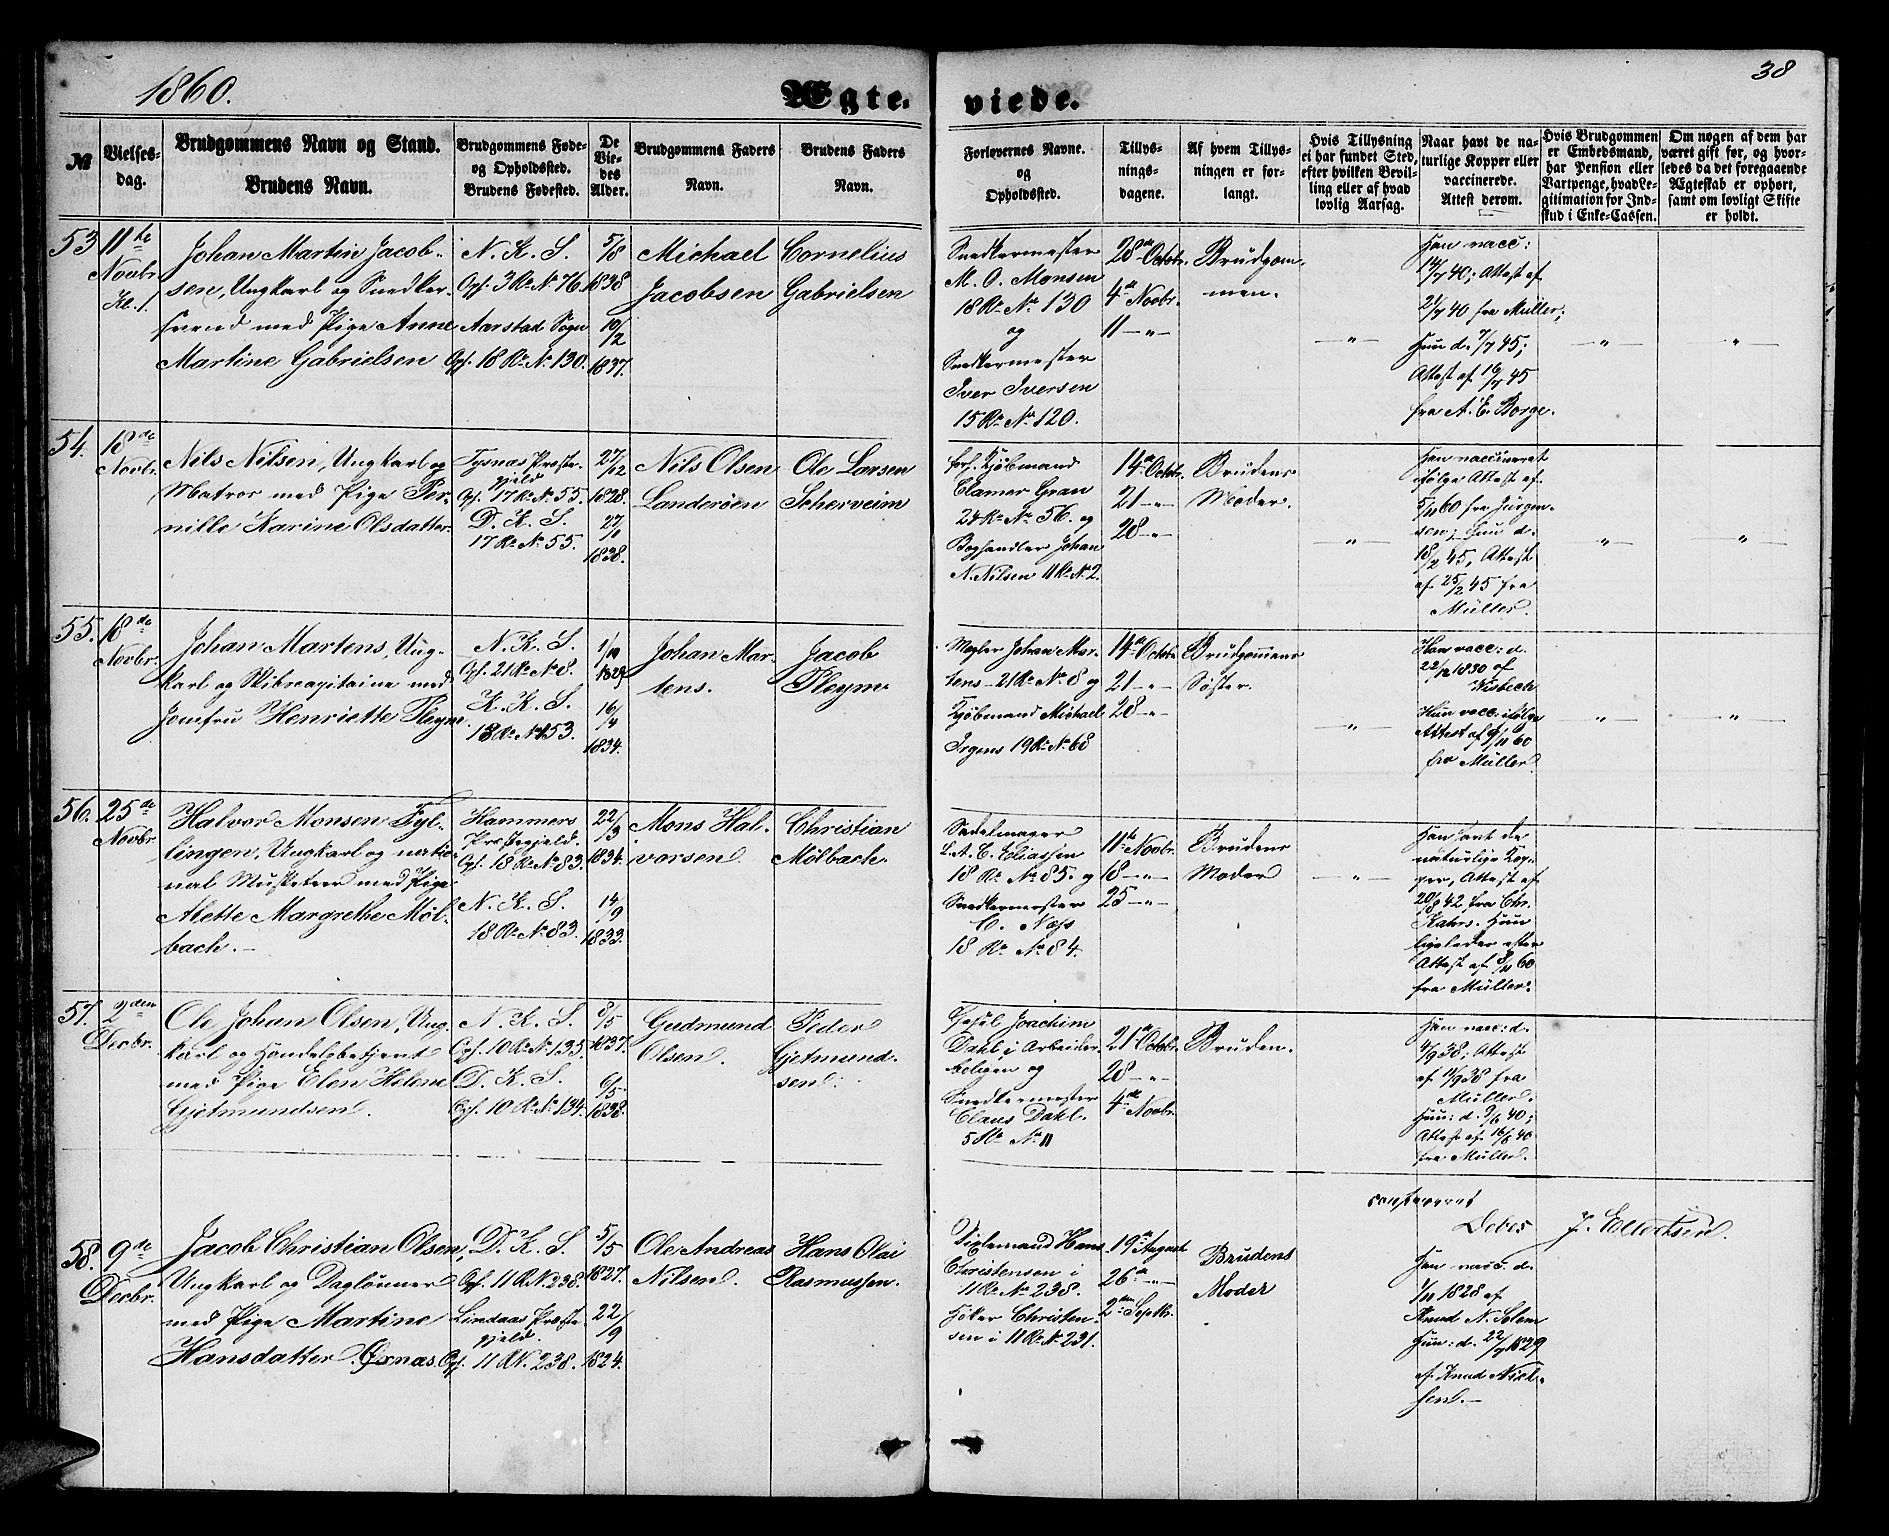 1860.
Ægte.
viede.
38
№
Vielses-
dag.
Brudgommens Navn og Stand.
Brudens Navn.
Brudgommens Føde-
og Opholdssted.
Brudens Fødested.
De
Vie-
des
Alder.
Brudgommens Faders
Navn.
Brudens Faders
Navn.
Forlovernes Navne.
og
Opholdssted.
Tillys-
nings-
dagene.
Af hvem Tillys-
ningen er for-
langt.
Hvis Tillysning
ei har fundet Sted,
efter hvilken Bevil-
ling eller af hvad
lovlig Aarsag.
Naar havt de na-
turlige Kopper eller
vaccinerede.
Attest derom.
Hvis Brudgommen
er Embedsmand,
har Pension eller
Vartpenge, hvad Le-
gitimation for Ind-
skud i Enke-Cassen.
Om nogen af dem har
været gift før, og hvor-
ledes da det foregaaende
Ægteskab er ophørt,
samt om lovligt Skifte
er holdt.
53
11te
Novbr.
Kl. 1.
Johan Martin Jacob-
sen, Ungkarl og Snedker-
svend med Pige Anne
Martine Gabrielsen
N. K. S.
Opf. 3 Rd. N. 76.
Aarstad Sogn
Opf. 18 Rd. N. 130.
5/8
1838
10/2
1837.
Michael
Jacobsen
Cornelius
Gabrielsen
Snedkermester
M. O. Monsen
18 Rd. No 130
og
Snedkermester
Iver Iversen
15 Rd. No 120.
28de Octobr.
4de Novbr.
11 — " —
Brudgom-
men.
— " —
Han vacc:
14/7 40; Attest af
21/7 40 fra Müller;
Hun d. 7/7 45;
Attest af 16/7 45
fra A. E. Borge.
— " —
— " —
54.
18de
Novbr.
Nils Nilsen, Ungkarl og
Matros med Pige Per-
nille Karine Olsdatter.
Tysnæs Præste-
gjeld
Opf. 17 Rd. N. 55.
D. K. S.
17 Rd. N. 55.
27/12
1828.
1838.
Nils Olsen
Landerøen
Ole Larsen
Scherveim
forh. Kjøbmand
Clamer Gran
24 Rd. No 56. og
Boghandler Johan
N. Nilsen 11 Rd. N. 2.
14de Octobr.
21 — " —
28 — " —
Brudens
Moder.
— " —
Han vaccineret
ifølge Attest af
5/11 60 fra Jürgen-
sen; Hun d.
18/2 45, Attest
af 25/2 45 fra
Müller.
— " —
— " —
55.
18de
Novbr.
Johan Martens, Ung-
karl og Skibscapitaine med
Jomfru Henriette Pleym.
N. K. S.
Opf. 21 Rd. N. 8.
K. K. S.
18 Rd. N. 153.
1829
16/4
1834.
Johan Mar-
tens.
Jacob
Pleym
Megler Johan Mar-
tens 21 Rd. No 8 og
Kjøbmand Michael
Irgens 19 Rd. No 68
14de Octobr.
21 — " —
28 — " —
Brudgommens
Søster.
— " —
Han vacc: d.
22/12 1830 af
Wisbech
Hun vacc: ifølge
Attest af 8/11 60
fra Müller.
— " —
— " —
56.
25de
Novbr.
Halvor Monsen Fyl-
lingen, Ungkarl og natio-
nal Musketeer med Pige
Alette Margrethe Møl-
bach. —
Hammers
Præstegjeld.
Opf. 18 Rd. N. 83.
N. K. S.
18 Rd. N. 83.
22/3
1834.
14/9
1833.
Mons Hal-
vorsen.
Christian
Mølbach.
Sadelmager
L. A. C. Eliassen
18 Rd. No 85. og
Snedkermester
C. Næss
18 Rd. No 84.
11te Novbr.
18 — " —
25 — " —
Brudens
Moder
— " —
Han havt de
naturlige Kop-
per, Attest af
20/8 42 fra Chr.
Kahrs. Hun
ligeledes efter
Attest af 8/11 60
fra Müller.
57.
2den
Decbr.
Ole Johan Olsen, Ung-
karl og Handelsbetjent
med Pige Elen Helene
Gjetmundsen.
N. K. S.
Opf. 10 Rd. N. 135.
D. K. S.
Opf. 10 Rd. No 134.
8/5
1837.
6/5
1838.
Gudmund
Olsen.
Peder
Gjetmund-
sen.
Joachim
Dahl i Arbeider-
boligen og
Snedkermester
Claus Dahl.
5 Rd. No 11
21de Octobr.
28 — " —
4de Novbr.
Bruden.
Han vacc: d.
4/9 38; Attest
af 11/9 38 fra
Müller.
Hun: d. 9/6 40;
Attest af 16/6 40
fra Müller.
confereret
Debes
J. Ellertsen.
58.
9de
Decbr.
Jacob Christian Olsen,
Ungkarl og Daglønner
med Pige Martine
Hansdatter Oxnas.
D. K. S.
Opf. 11 R. N. 238.
Lindaas Præste-
gjeld.
Opf. 11 R. N. 238.
5/5
1827.
22/9
1824.
Ole Andreas
Nilsen.
Hans Olai
Rasmussen.
Hans
Christensen i
11 Rd. No 238.
Høker Christen-
sen i 11 Rd. N. 231.
19de August
26de — " —
2den Septbr.
Brudens
Moder
Han vacc. d.
1/11 1828 af
Knud N. Solem
Hun: d. 22/7 1829
af Knud Niel-
sen. —